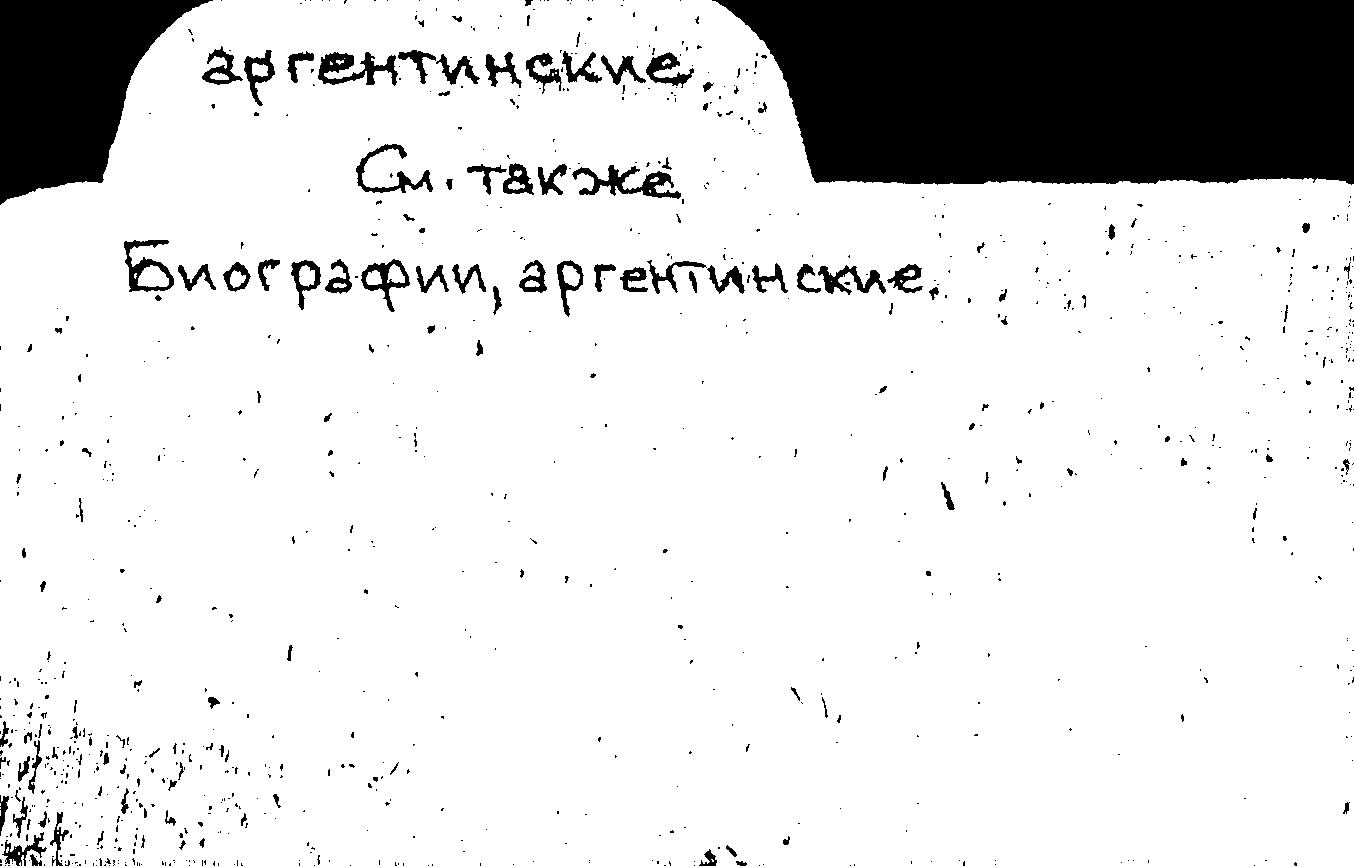 аргентинские.
См. также
Биографии, аргентинские.